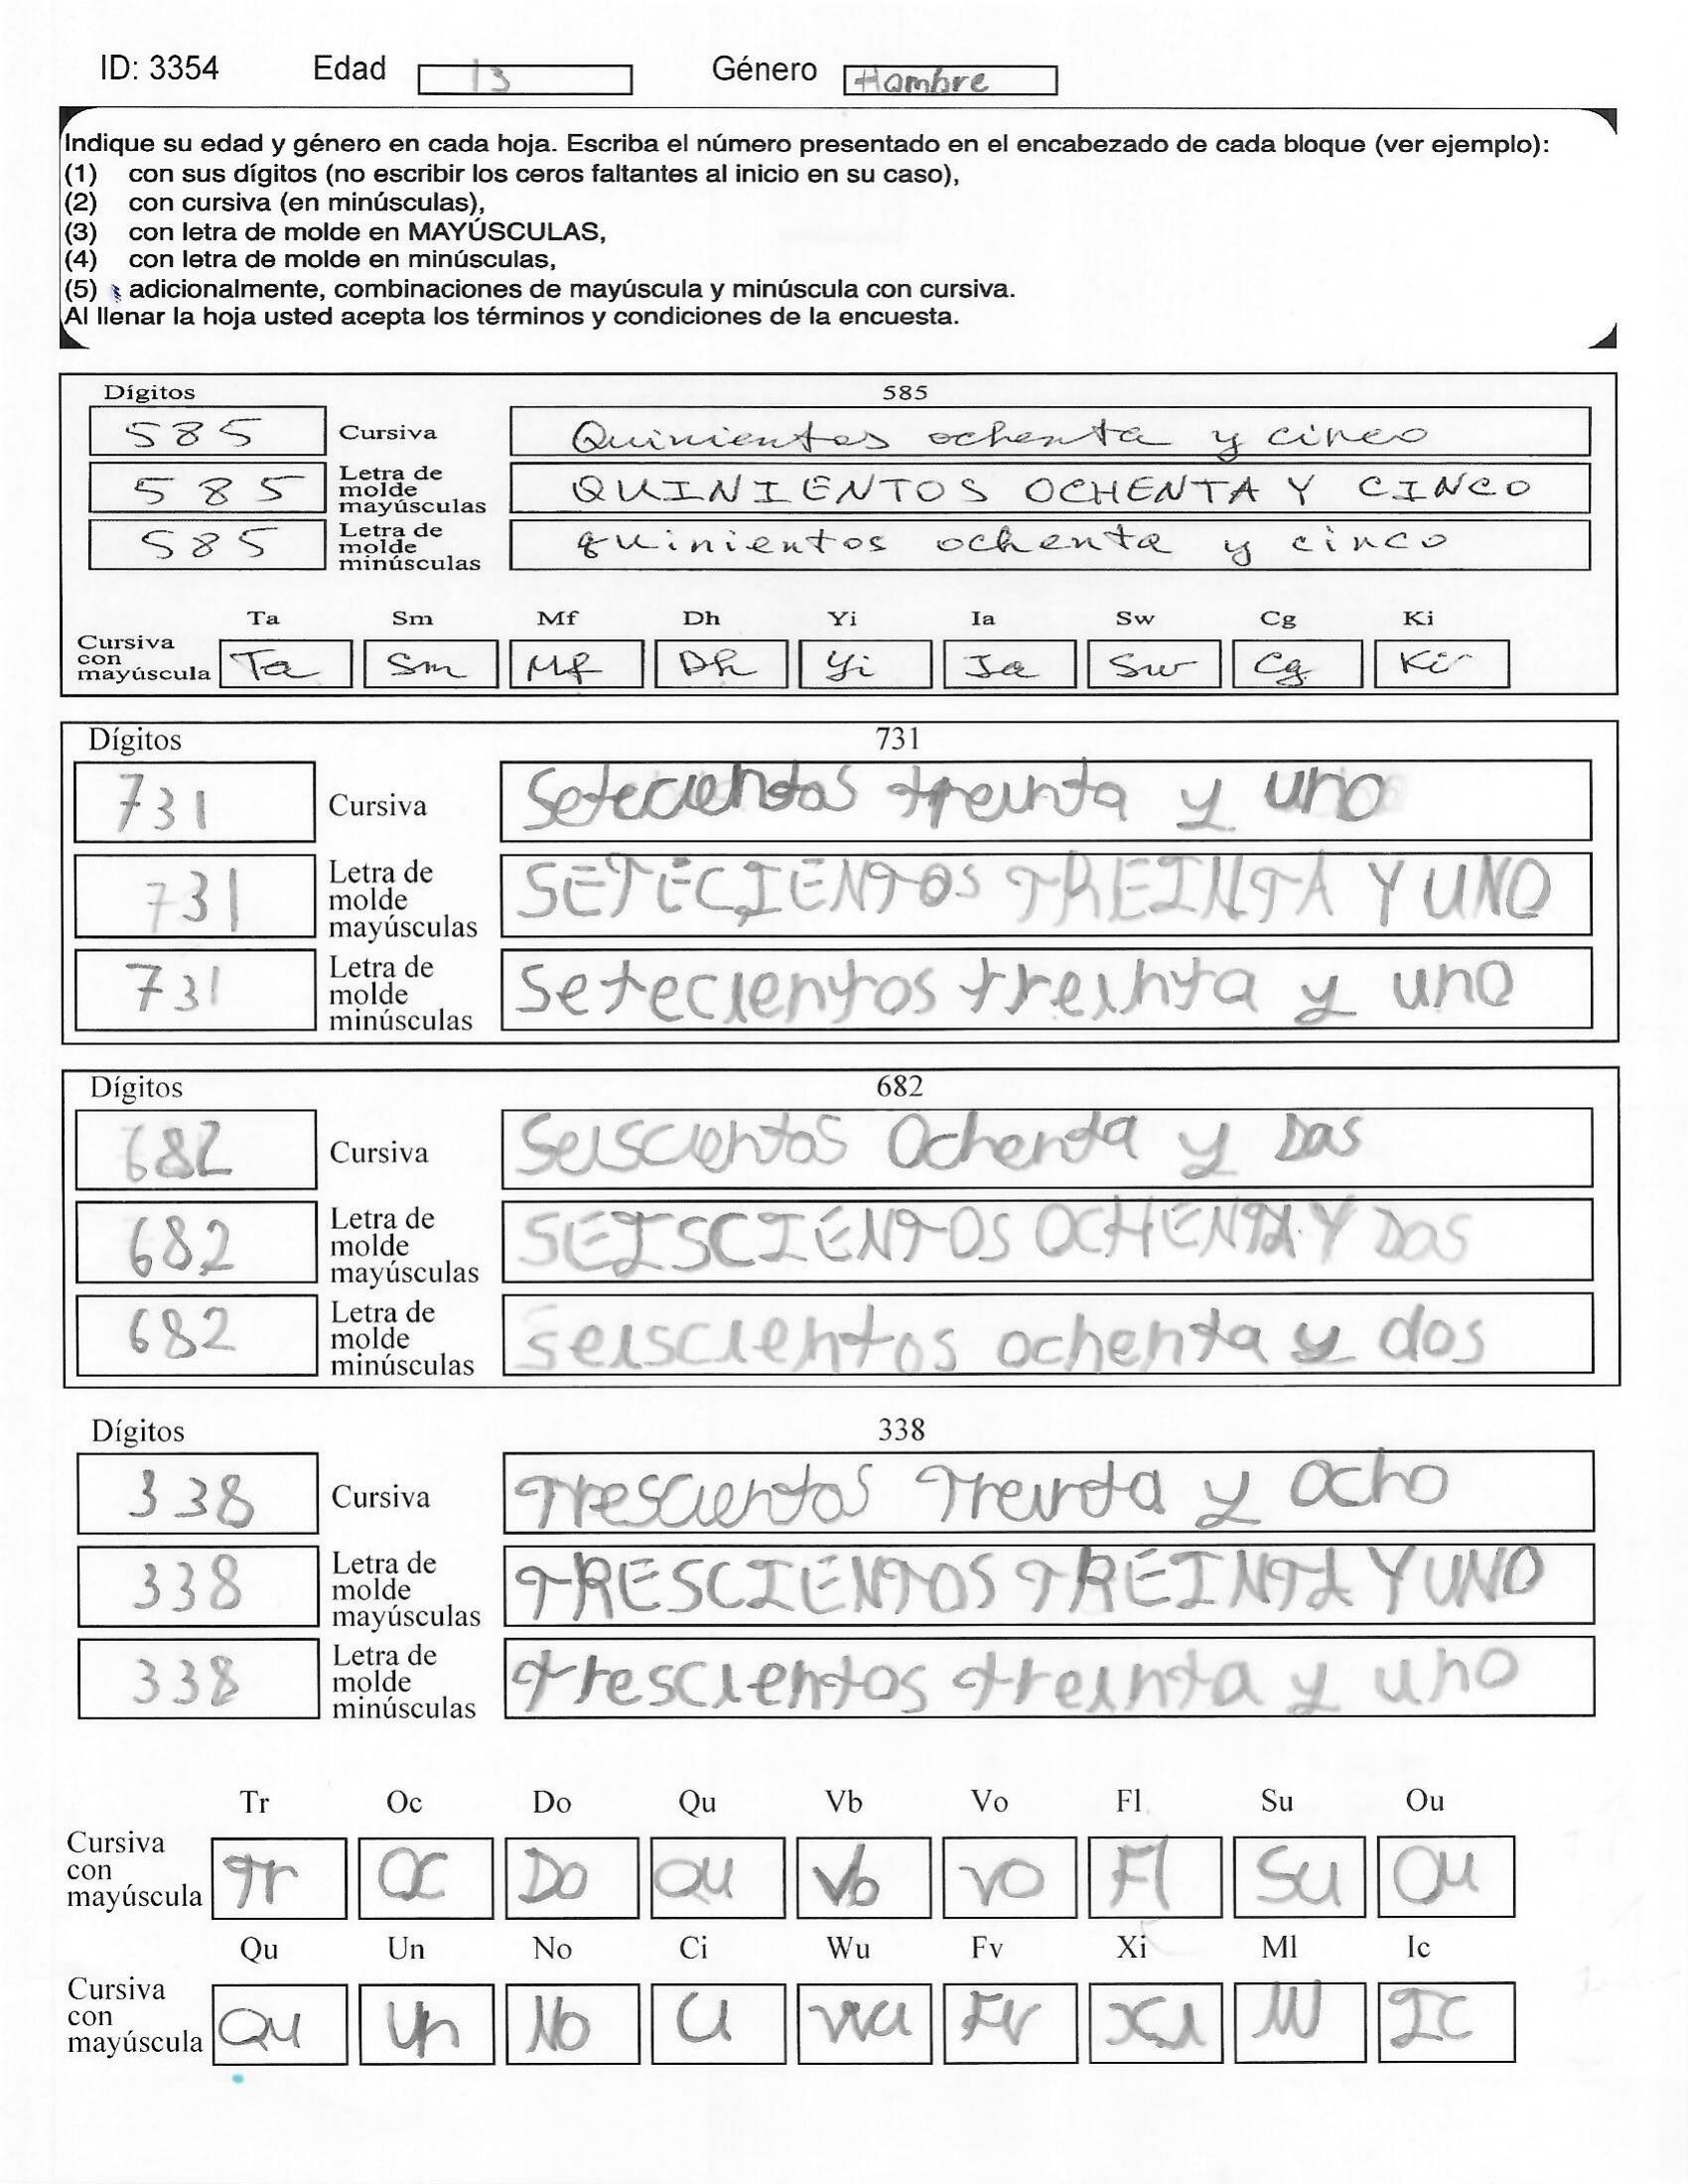 ID: 3354 Edad 13 Género Hombre
Indique su edad y género en cada hoja. Escriba el número presentado en el encabezado de cada bloque (ver ejemplo):
(1) con sus dígitos (no escribir los ceros faltantes al inicio en su caso),
(2) con cursiva (en minúsculas),
(3) con letra de molde en MAYÚSCULAS,
(4) con letra de molde en minúsculas,
(5) adicionalmente, combinaciones de mayúscula y minúscula con cursiva.
Al llenar la hoja usted acepta los términos y condiciones de la encuesta.
Dígitos 585
585 Cursiva Quinientos ochenta y cinco
585 Letra de molde mayúsculas QUINIENTOS OCHENTA Y CINCO
585 Letra de molde minúsculas quinientos ochenta y cinco
Ta Sm Mf Dh Yi Ia Sw Cg Ki
Cursiva con mayúscula Ta Sm Mf Dh Yi Ia Sw Cg Ki
Dígitos 731
731 Cursiva Setecientos treinta y uno
731 Letra de molde mayúsculas SETECIENTOS TREINTA Y UNO
731 Letra de molde minúsculas Setecientos treinta y uno
Dígitos 682
682 Cursiva Seiscientos Ochenta y Dos
682 Letra de molde mayúsculas SEISCIENTOS OCHENTA Y DOS
682 Letra de molde minúsculas seiscientos ochenta y dos
Dígitos 338
338 Cursiva Trescientos Treinta y ocho
338 Letra de molde mayúsculas TRESCIENTOS TREINTA Y UNO
338 Letra de molde minúsculas trescientos treinta y uno
Tr Oc Do Qu Vb Vo Fl Su Ou
Cursiva con mayúscula Tr Oc Do Qu Vb Vo Fl Su Ou
Qu Un No Ci Wu Fv Xi Ml Ic
Cursiva con mayúscula Qu Un No Ci Wu Fv Xi Ml Ic